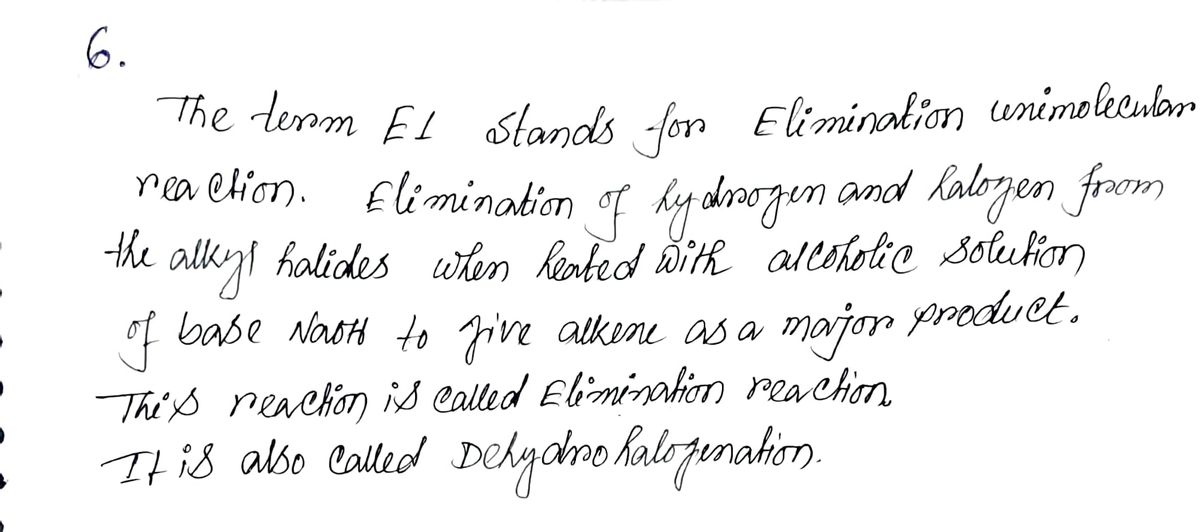 6.
The term E1 stands for Elimination unimolecular
reaction. Elimination of hydrogen and halogen from
the alkyl halides when heated with alcoholic solution
of base NaOH to give alkene as a major product.
This reaction is called Elimination reaction.
It is also called Dehydrohalogenation.